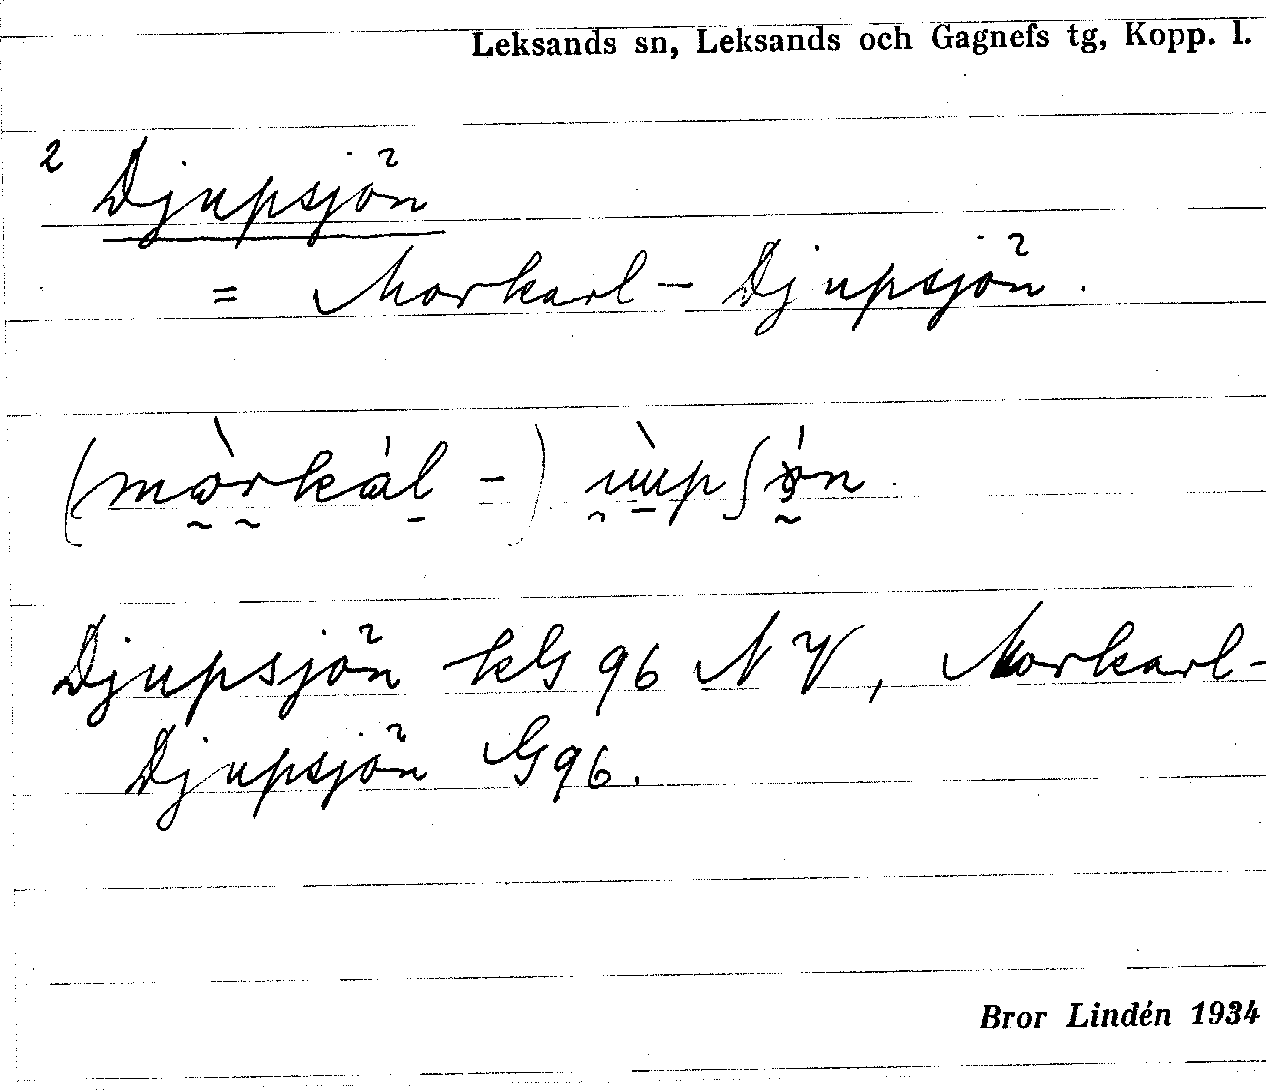 Leksands sn, Leksands och Gagnefs tg, Kopp. l.
2 Djupsjön
= Morkarl-Djupsjön.
(mòrkál-)
Djupsjön kG 96 NV, Morkarl-
Djupsjön G96.
Bror Lindén 1934